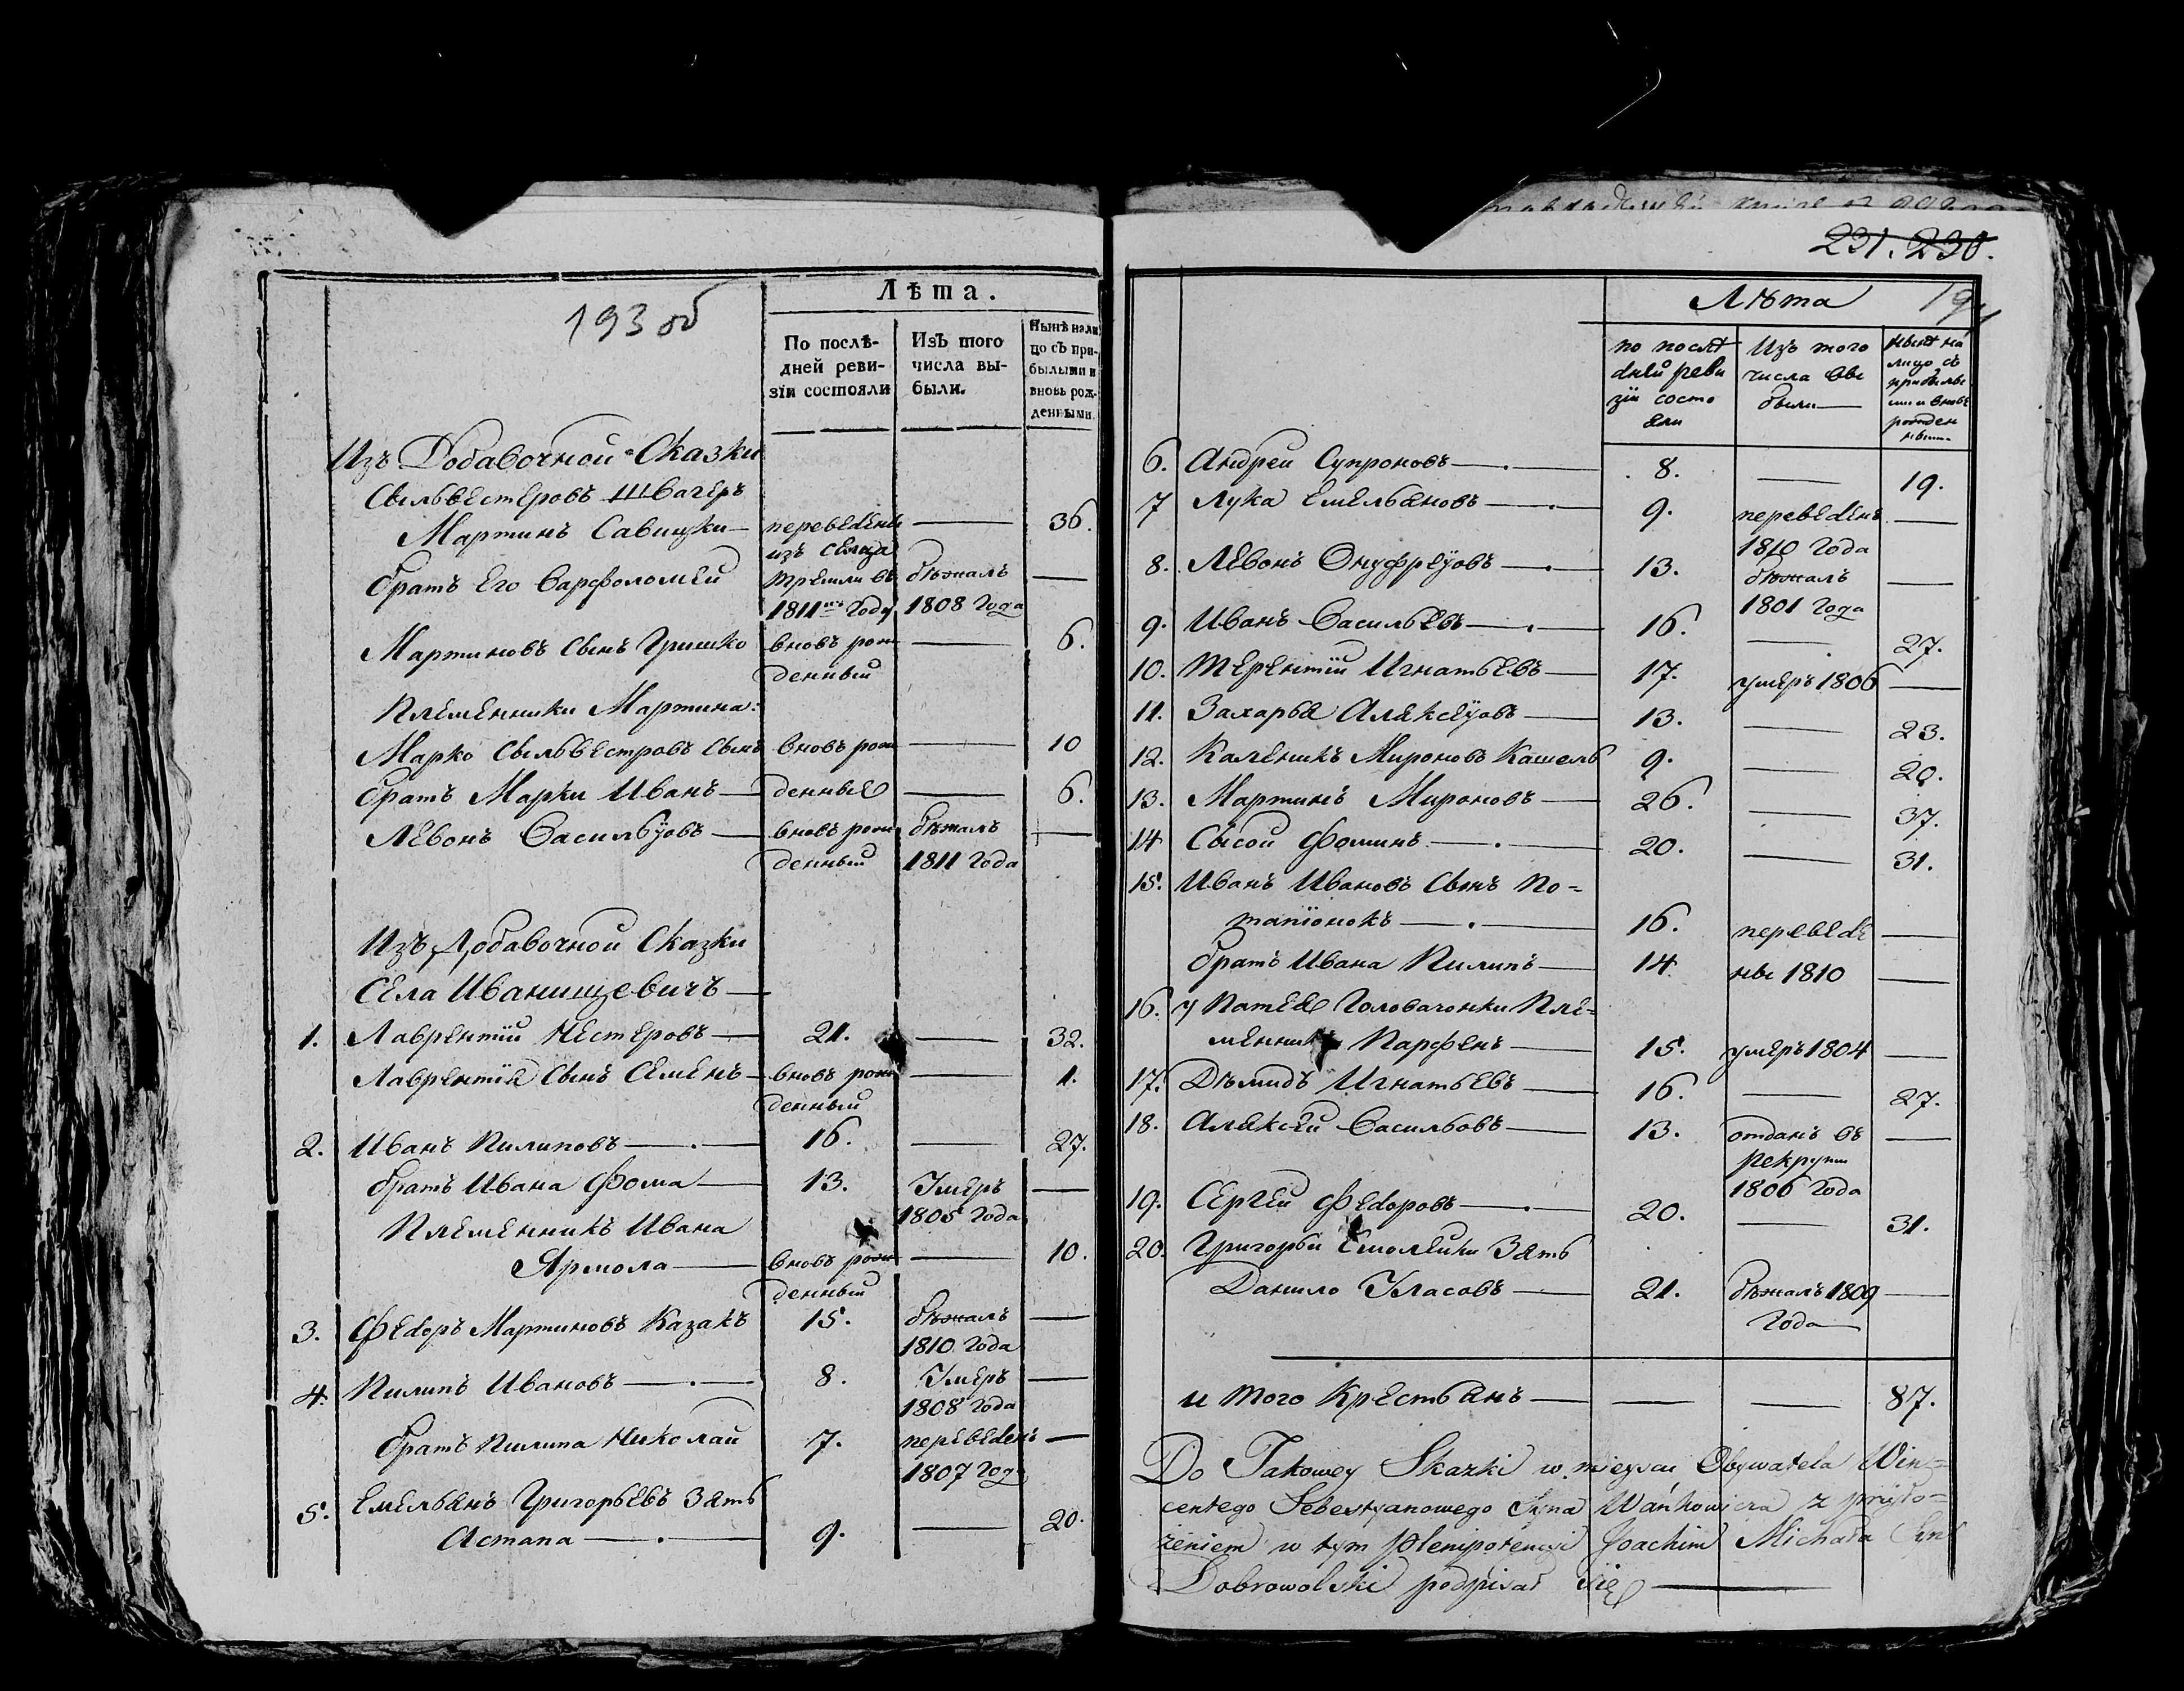 193 об
Лѣта.
По послѣ-
дней реви-
зіи состояли
Изъ того
числа вы-
были.
Нынѣ нали
цо съ при-
былыми и
вновь рож-
денными.
Изъ Добавочной Сказки
Сыльвестеровъ Швагеръ
Мартинъ Савицки — переведены — 36.
изъ сельца
братъ Его Варфоломей бѣжалъ —
1811го Году 1808 Года
Мартиновъ Сынъ Гришко вновь рож — 6.
денный
Племенники Мартина:
Марко Сыльвестровъ Сынъ вновь рож — 10
братъ Марки Иванъ — денные — 6.
Левонъ Васильўовъ — вновь рож бѣжалъ —
денный 1811 Года
Изъ Добавочной Сказки
Села Иванищевичъ —
1. Лаврентій Нестеровъ — 21. — 32.
Лаврентія Сынъ Семенъ — вновь рож — 1.
денный
2. Иванъ Пилиповъ — 16. — 27.
братъ Ивана Фома — 13. Умеръ —
1805 Года
Племенникъ Ивана
Ярмола — вновь рож — 10.
денный
3. Федоръ Мартиновъ Казакъ 15. бѣжалъ —
1810 Года
4. Пилипъ Ивановъ — 8. Умеръ —
1808 Года
братъ Пилипа Николай 7. переведенъ —
1807 Год
5. Емельянъ Григорьевъ Зять
Астапа — 9. — 20.
231. 230.
Лѣта
по послѣ
дней реви
зіи состо
яли
Изъ того
числа вы
были —
Нынѣ на
лицо съ
прибылы
ми и вновь
рожден
ными
6. Андрей Супроновъ — 8. — 19.
7 Лука Емельяновъ — 9. переведенъ —
1810 Года
8. Левонъ Онуфреўовъ — 13. бѣжалъ —
1801 Года
9. Иванъ Васильевъ — 16. — 27.
10. Терентій Игнатьевъ — 17. умеръ 1806 —
11. Захарья Алексеўовъ — 13. — 23.
12. Каленикъ Мироновъ Кашель 9. — 20.
13. Мартинъ Мироновъ — 26. — 37.
14 Сысой Фоминъ — 20. — 31.
15. Иванъ Ивановъ Сынъ По=
тапіонокъ — 16. переведе —
братъ Ивана Пилипъ — 14 ны 1810 —
16. у Патея Головачонки Пле=
менникъ Парфенъ — 15. умеръ 1804 —
17. Дѣмидъ Игнатьевъ — 16. — 27.
18. Алексѣй Васильовъ — 13. отданъ въ —
рекруты
1806 Года
19. Сергей Федоровъ — 20. — 31.
20. Григорьи Ермолейки Зять
Данило Уласовъ — 21. бѣжалъ 1809 —
Года
и того Крестьянъ — — — 87.
Do Takowey Skazki w mieyscu Obywatela Win=
centego Sebestyanowego Syna Wańkowicza z przyło=
żeniem w tym plenipotencyi Joachim Michała Syn
Dobrowolski podpisał się —